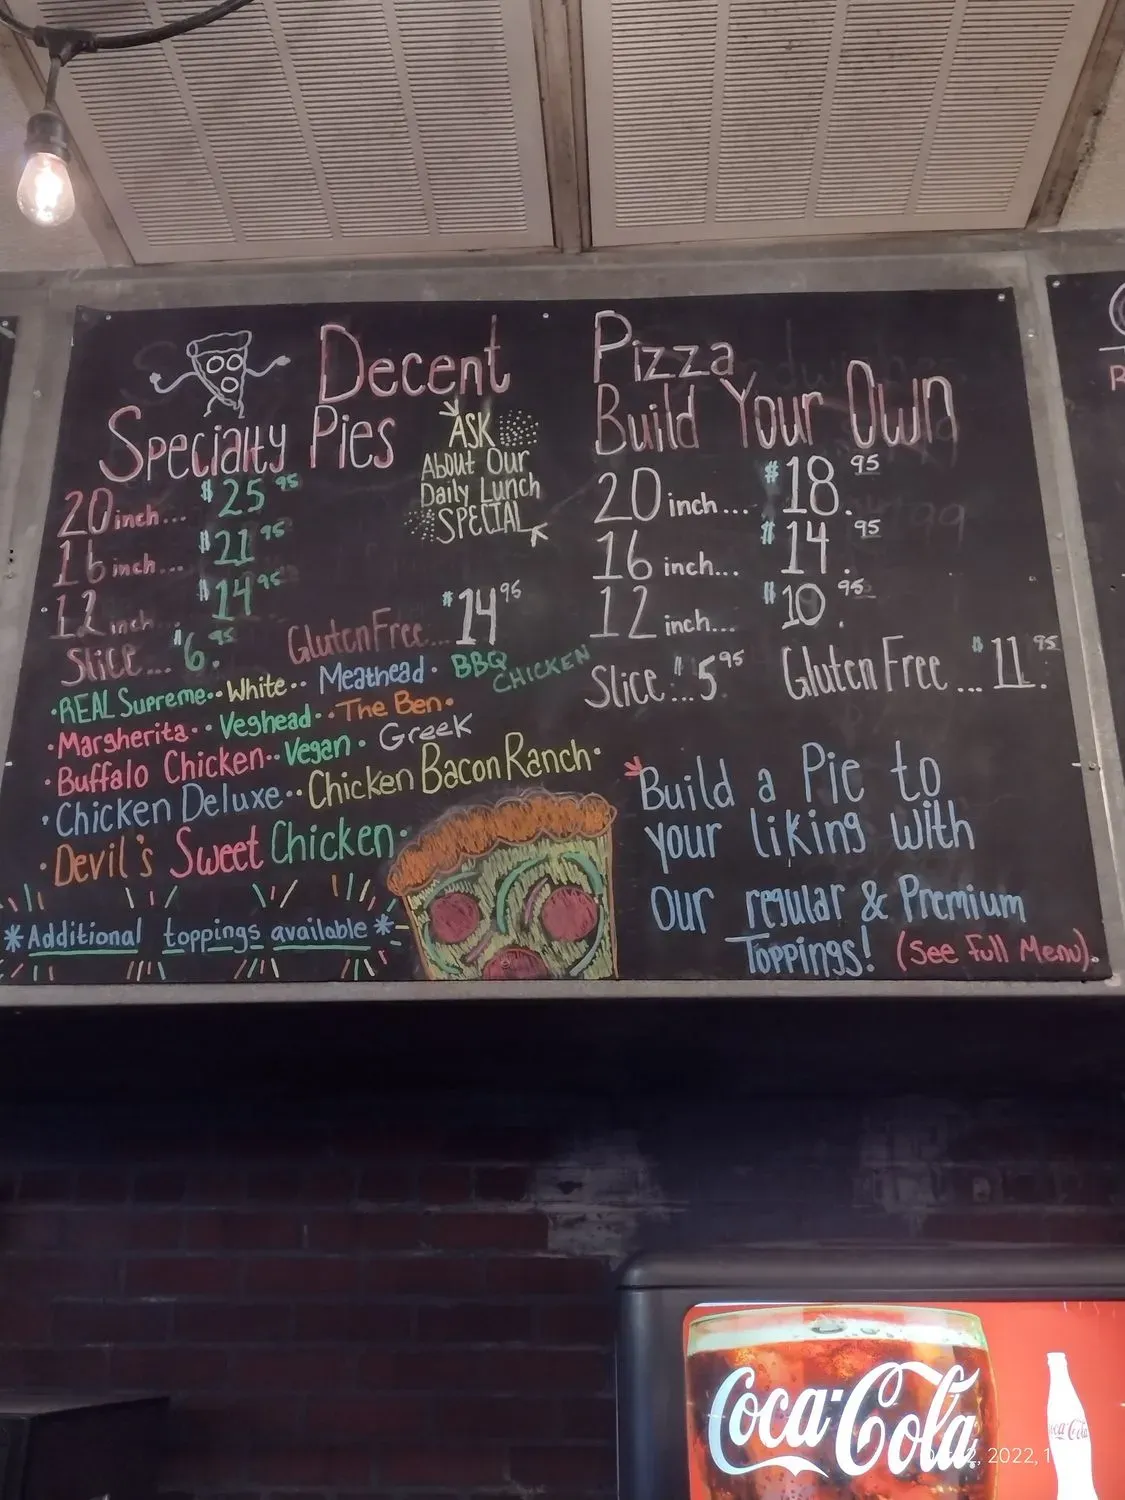 Decent Pizza
Specialty Pies
20 inch... $25.95
16 inch... $21.95
12 inch... $14.95
Slice... $6.95
Gluten Free... $14.95
ASK
About Our
Daily Lunch
SPECIAL
·REAL Supreme··White·· Meathead· BBQ CHICKEN
·Margherita·· Veghead··The Ben·
·Buffalo Chicken··Vegan· Greek
·Chicken Deluxe··Chicken Bacon Ranch·
·Devil's Sweet Chicken·
*Additional toppings available*
Build Your Own
20 inch... $18.95
16 inch... $14.95
12 inch... $10.95
Slice... $5.95
Gluten Free... $11.95
Build a Pie to
your liking with
our regular & Premium
Toppings! (See Full Menu)
Coca-Cola
Coca-Cola
2, 2022, 1